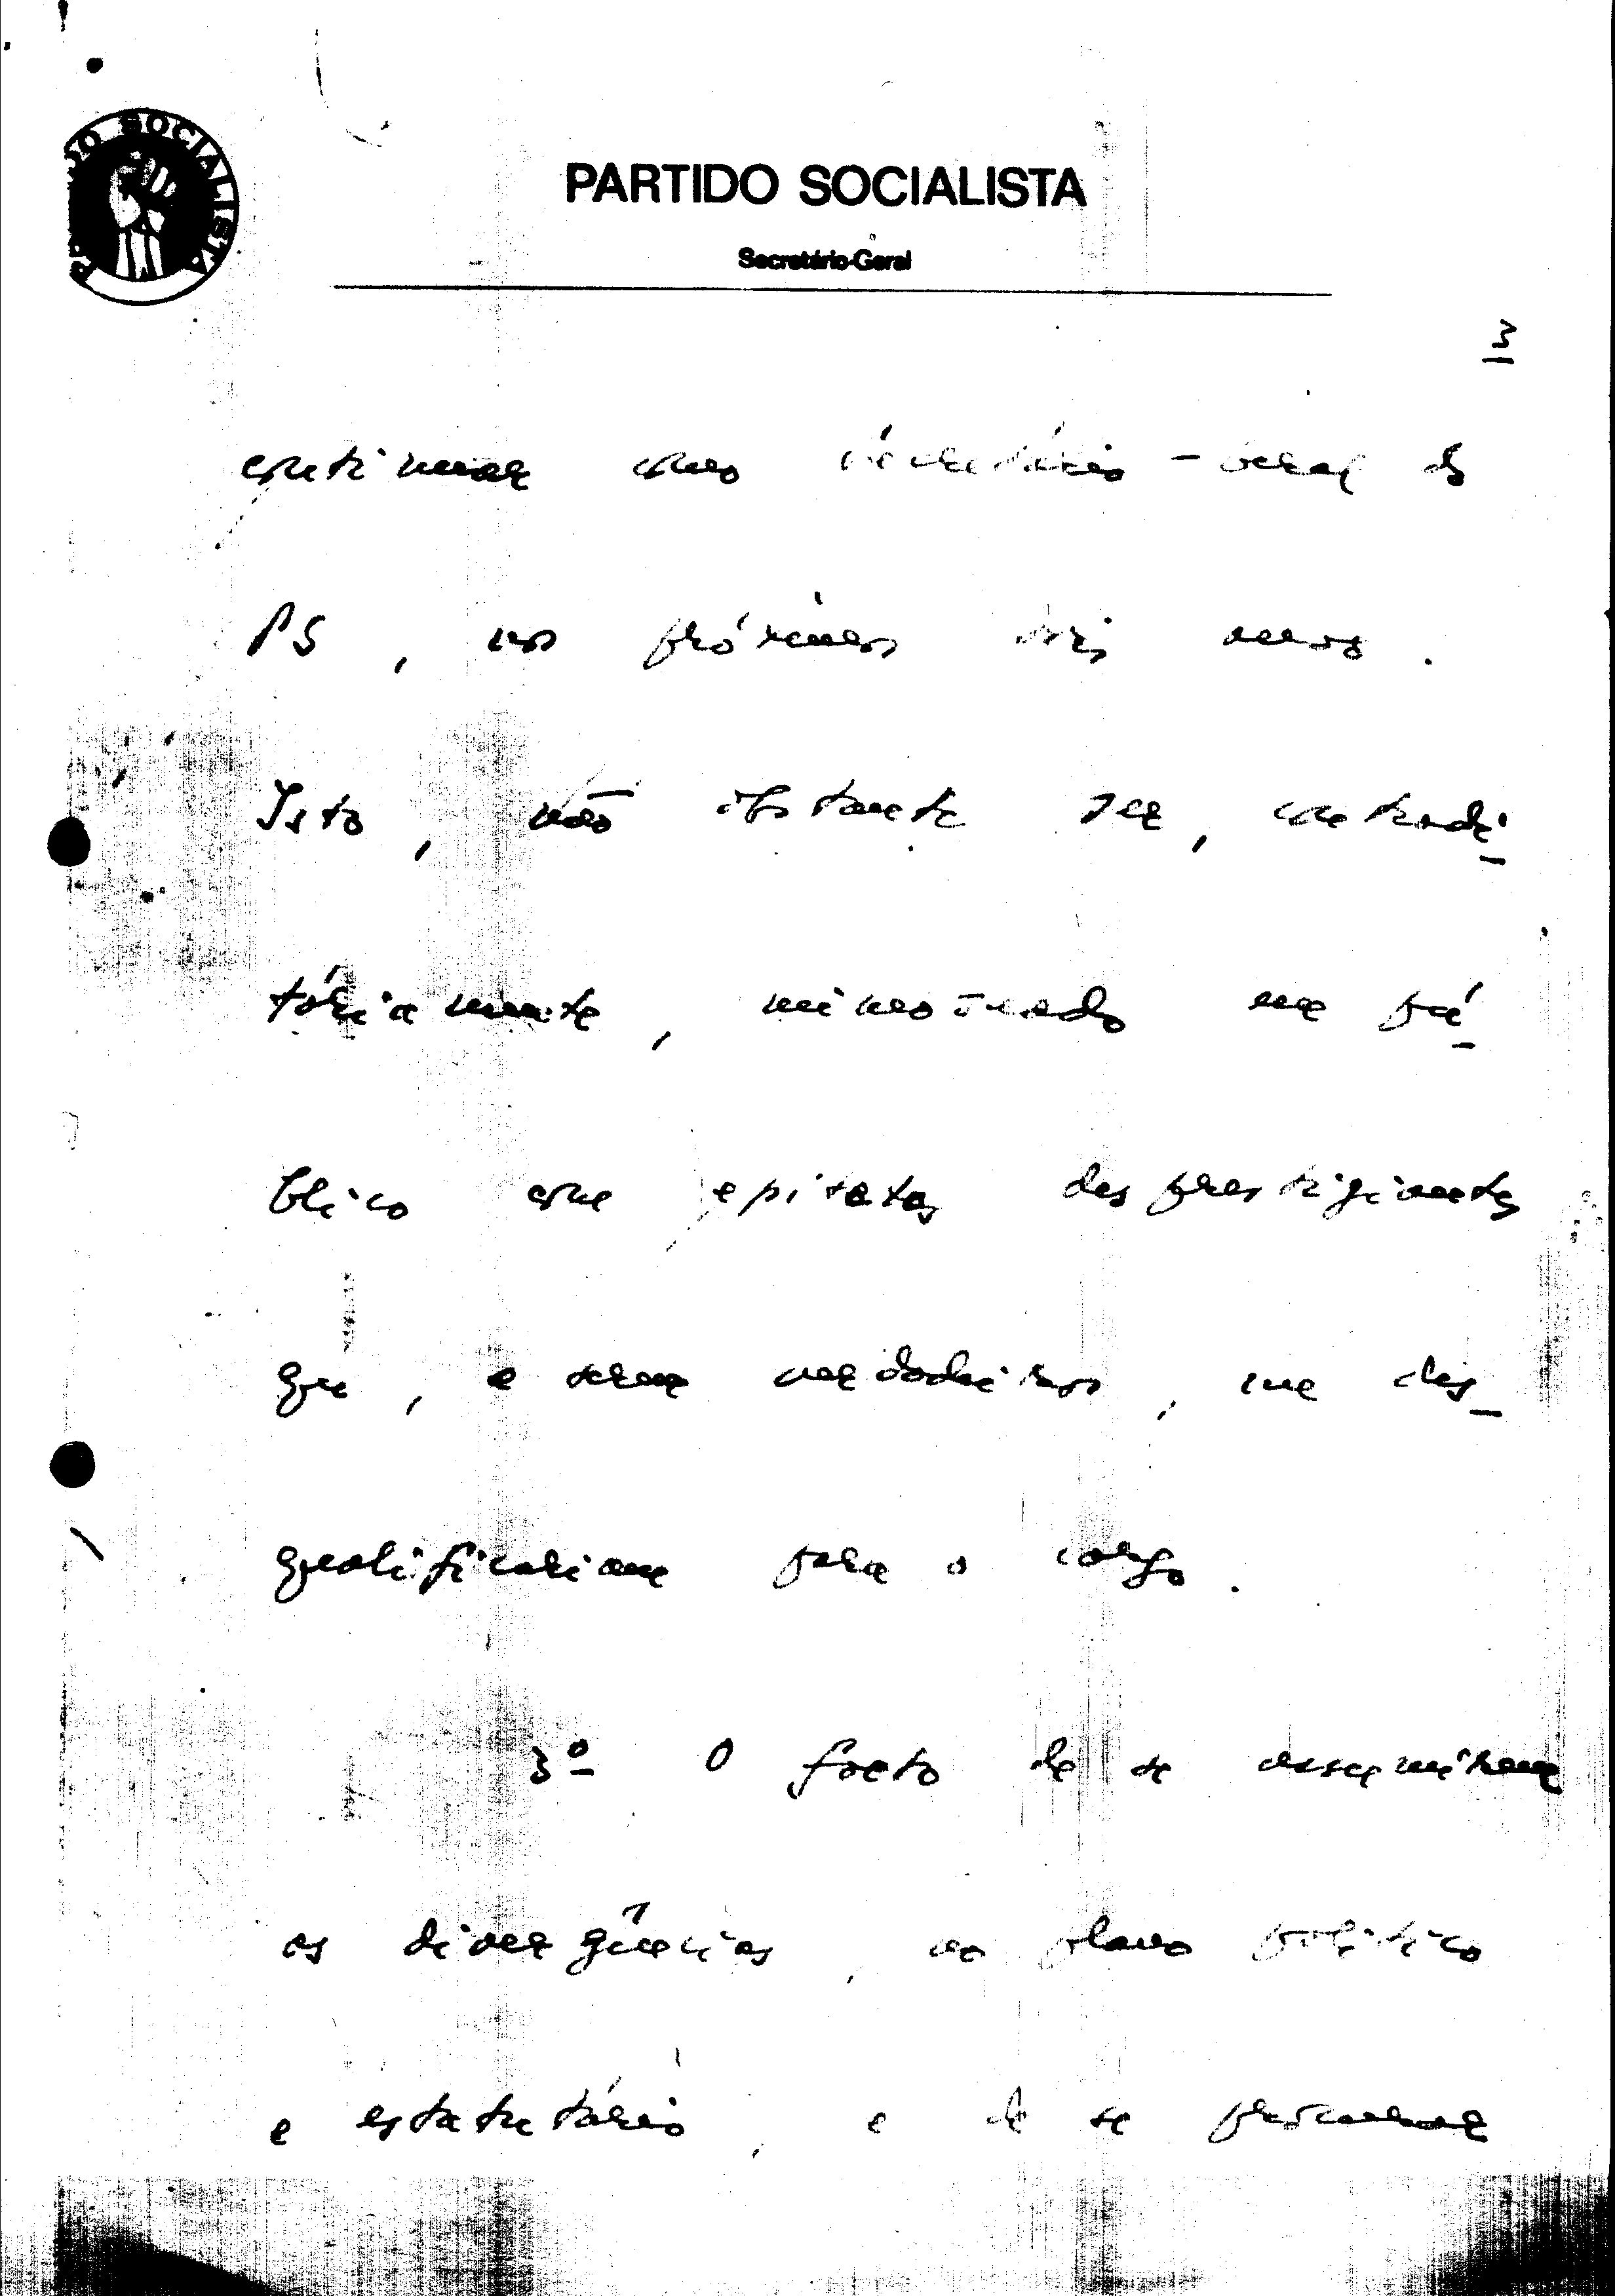 PARTIDO SOCIALISTA
PARTIDO SOCIALISTA
Secretário-Geral
3
continuar como secretário-geral do
PS, nos próximos dois anos.
Isto, não obstante ser, contradi-
tóriamente, mimoseado em pú-
blico com epitetos desprestigiantes
que, a serem verdadeiros, me des-
qualificariam para o cargo.
3º O facto de se assumirem
as divergências, no plano político
e estatutário, e de se procurar